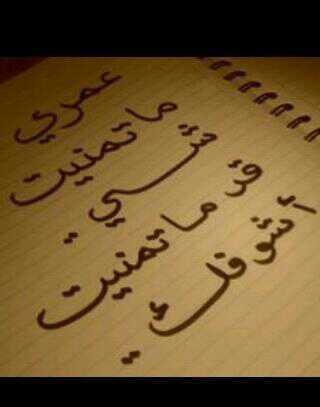 عمري
ما تمنيت
شـي ..
قد ما تمنيت
أشوفك .